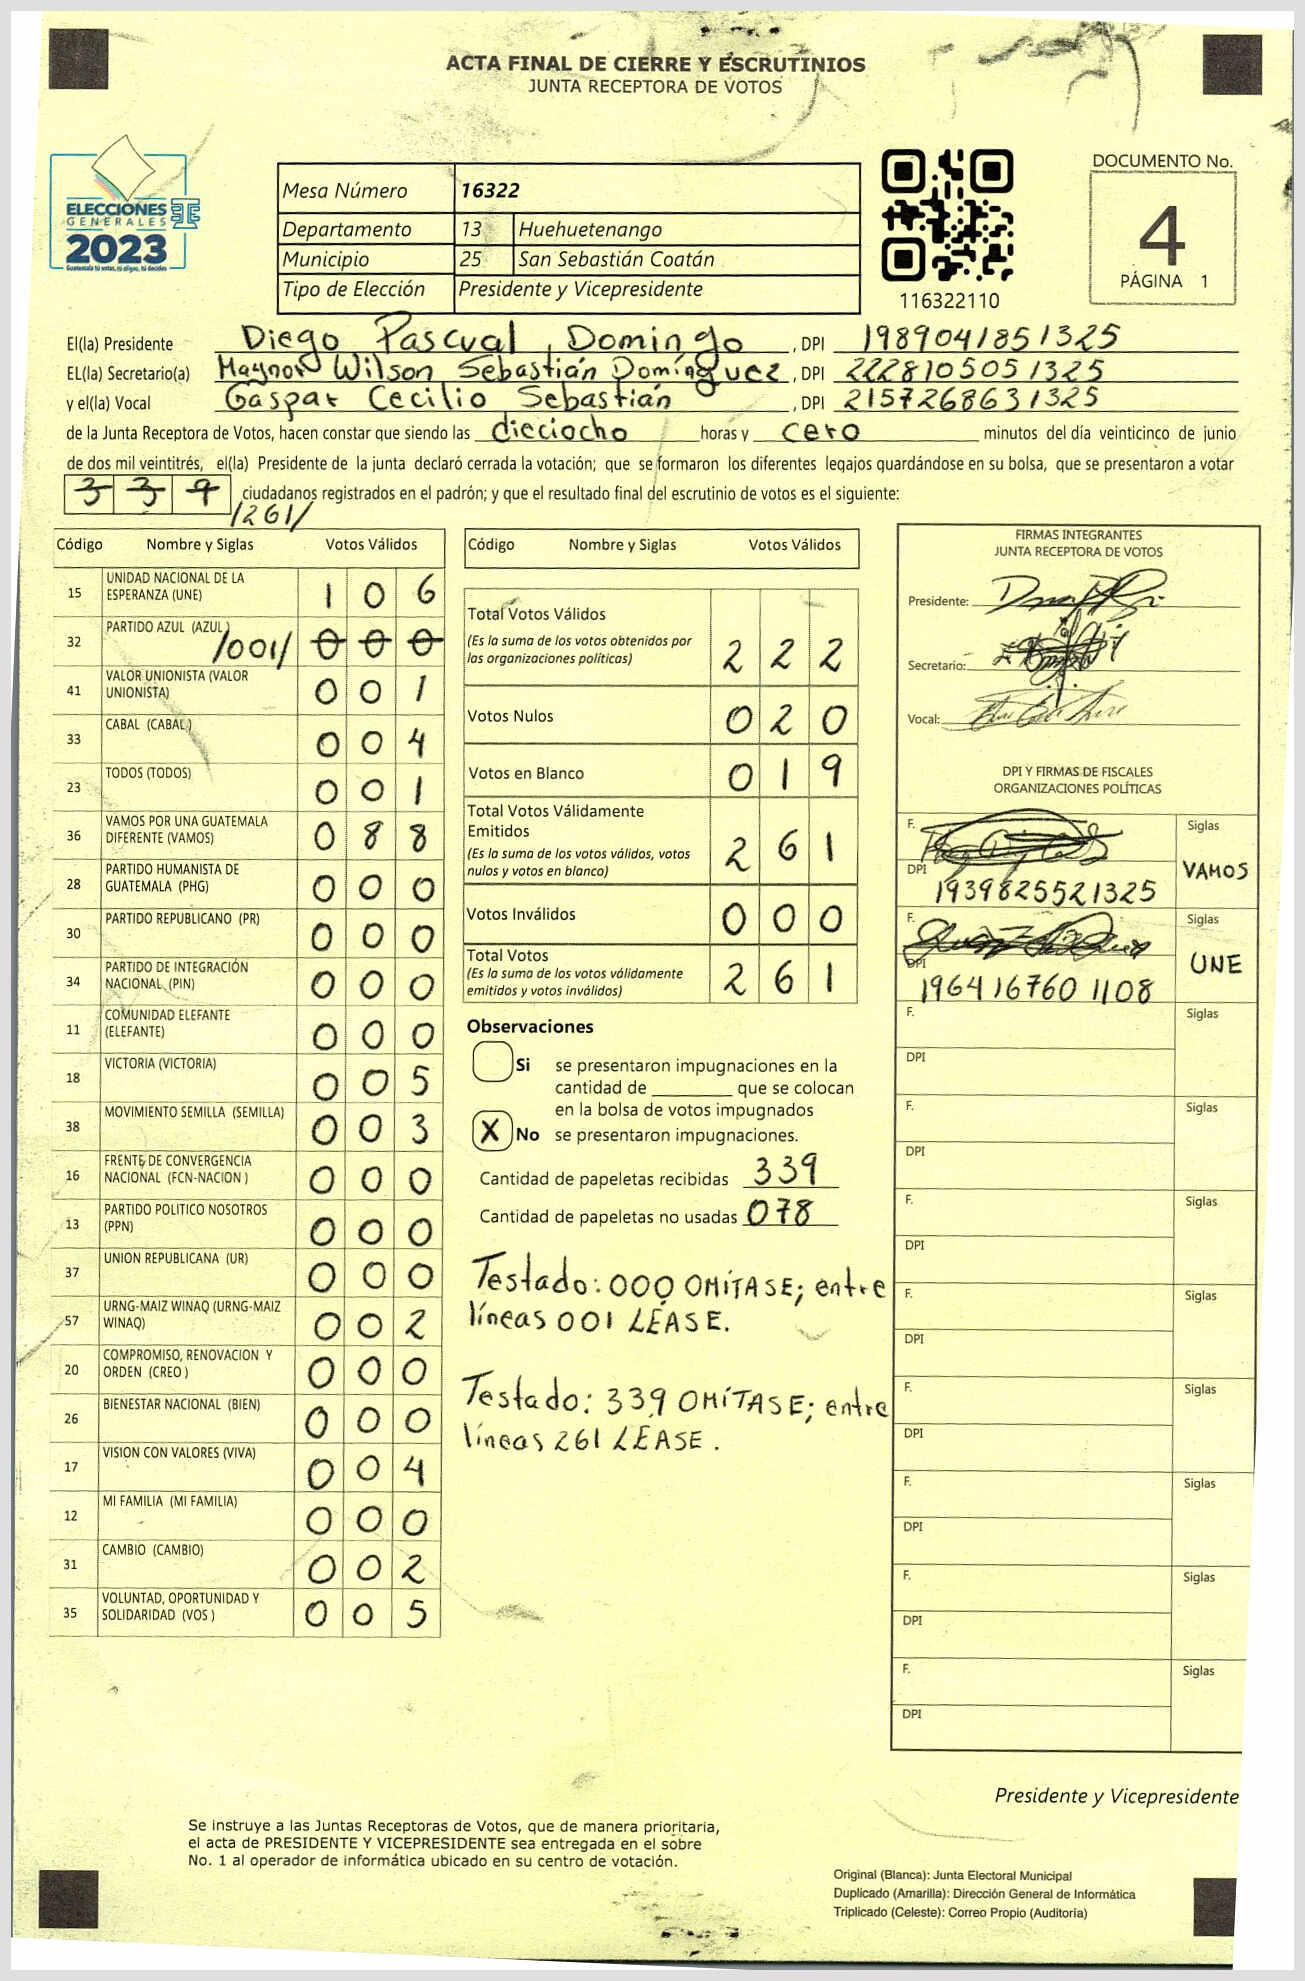 ACTA FINAL DE CIERRE Y ESCRUTINIOS
JUNTA RECEPTORA DE VOTOS
ELECCIONES
GENERALES
2023
Guatemala tú votas, tú eliges, tú decides
Mesa Número 16322
Departamento 13 Huehuetenango
Municipio 25 San Sebastián Coatán
Tipo de Elección Presidente y Vicepresidente
116322110
DOCUMENTO No.
4
PÁGINA 1
El(la) Presidente Diego Pascual Domingo, DPI 1989041851325
EL(la) Secretario(a) Maynor Wilson Sebastián Domínguez, DPI 2228105051325
y el(la) Vocal Gaspar Cecilio Sebastián, DPI 2157268631325
de la Junta Receptora de Votos, hacen constar que siendo las dieciocho horas y cero minutos del día veinticinco de junio
de dos mil veintitrés, el(la) Presidente de la junta declaró cerrada la votación; que se formaron los diferentes legajos guardándose en su bolsa, que se presentaron a votar
339 ciudadanos registrados en el padrón; y que el resultado final del escrutinio de votos es el siguiente:
/261/
Código Nombre y Siglas Votos Válidos
15 UNIDAD NACIONAL DE LA
ESPERANZA (UNE) 1 0 6
32 PARTIDO AZUL (AZUL) /001/ 0 0 0
41 VALOR UNIONISTA (VALOR
UNIONISTA) 0 0 1
33 CABAL (CABAL) 0 0 4
23 TODOS (TODOS) 0 0 1
36 VAMOS POR UNA GUATEMALA
DIFERENTE (VAMOS) 0 8 8
28 PARTIDO HUMANISTA DE
GUATEMALA (PHG) 0 0 0
30 PARTIDO REPUBLICANO (PR) 0 0 0
34 PARTIDO DE INTEGRACIÓN
NACIONAL (PIN) 0 0 0
11 COMUNIDAD ELEFANTE
(ELEFANTE) 0 0 0
18 VICTORIA (VICTORIA) 0 0 5
38 MOVIMIENTO SEMILLA (SEMILLA) 0 0 3
16 FRENTE DE CONVERGENCIA
NACIONAL (FCN-NACION ) 0 0 0
13 PARTIDO POLITICO NOSOTROS
(PPN) 0 0 0
37 UNION REPUBLICANA (UR) 0 0 0
57 URNG-MAIZ WINAQ (URNG-MAIZ
WINAQ) 0 0 2
20 COMPROMISO, RENOVACION Y
ORDEN (CREO ) 0 0 0
26 BIENESTAR NACIONAL (BIEN) 0 0 0
17 VISION CON VALORES (VIVA) 0 0 4
12 MI FAMILIA (MI FAMILIA) 0 0 0
31 CAMBIO (CAMBIO) 0 0 2
35 VOLUNTAD, OPORTUNIDAD Y
SOLIDARIDAD (VOS ) 0 0 5
Código Nombre y Siglas Votos Válidos
Total Votos Válidos
(Es la suma de los votos obtenidos por
las organizaciones políticas) 2 2 2
Votos Nulos 0 2 0
Votos en Blanco 0 1 9
Total Votos Válidamente
Emitidos
(Es la suma de los votos válidos, votos
nulos y votos en blanco) 2 6 1
Votos Inválidos 0 0 0
Total Votos
(Es la suma de los votos válidamente
emitidos y votos inválidos) 2 6 1
Observaciones
Si se presentaron impugnaciones en la
cantidad de ________ que se colocan
en la bolsa de votos impugnados
X No se presentaron impugnaciones.
Cantidad de papeletas recibidas 339
Cantidad de papeletas no usadas 078
Testado: 000 OMÍTASE; entre
líneas 001 LÉASE.
Testado: 339 OMÍTASE; entre
líneas 261 LÉASE.
FIRMAS INTEGRANTES
JUNTA RECEPTORA DE VOTOS
Presidente:
Secretario:
Vocal:
DPI Y FIRMAS DE FISCALES
ORGANIZACIONES POLÍTICAS
F. Siglas
VAMOS
DPI
1939825521325
F. Siglas
UNE
DPI
1964167601108
F. Siglas
DPI
F. Siglas
DPI
F. Siglas
DPI
F. Siglas
DPI
F. Siglas
DPI
F. Siglas
DPI
F. Siglas
DPI
F. Siglas
DPI
Presidente y Vicepresidente
Se instruye a las Juntas Receptoras de Votos, que de manera prioritaria,
el acta de PRESIDENTE Y VICEPRESIDENTE sea entregada en el sobre
No. 1 al operador de informática ubicado en su centro de votación.
Original (Blanca): Junta Electoral Municipal
Duplicado (Amarilla): Dirección General de Informática
Triplicado (Celeste): Correo Propio (Auditoría)